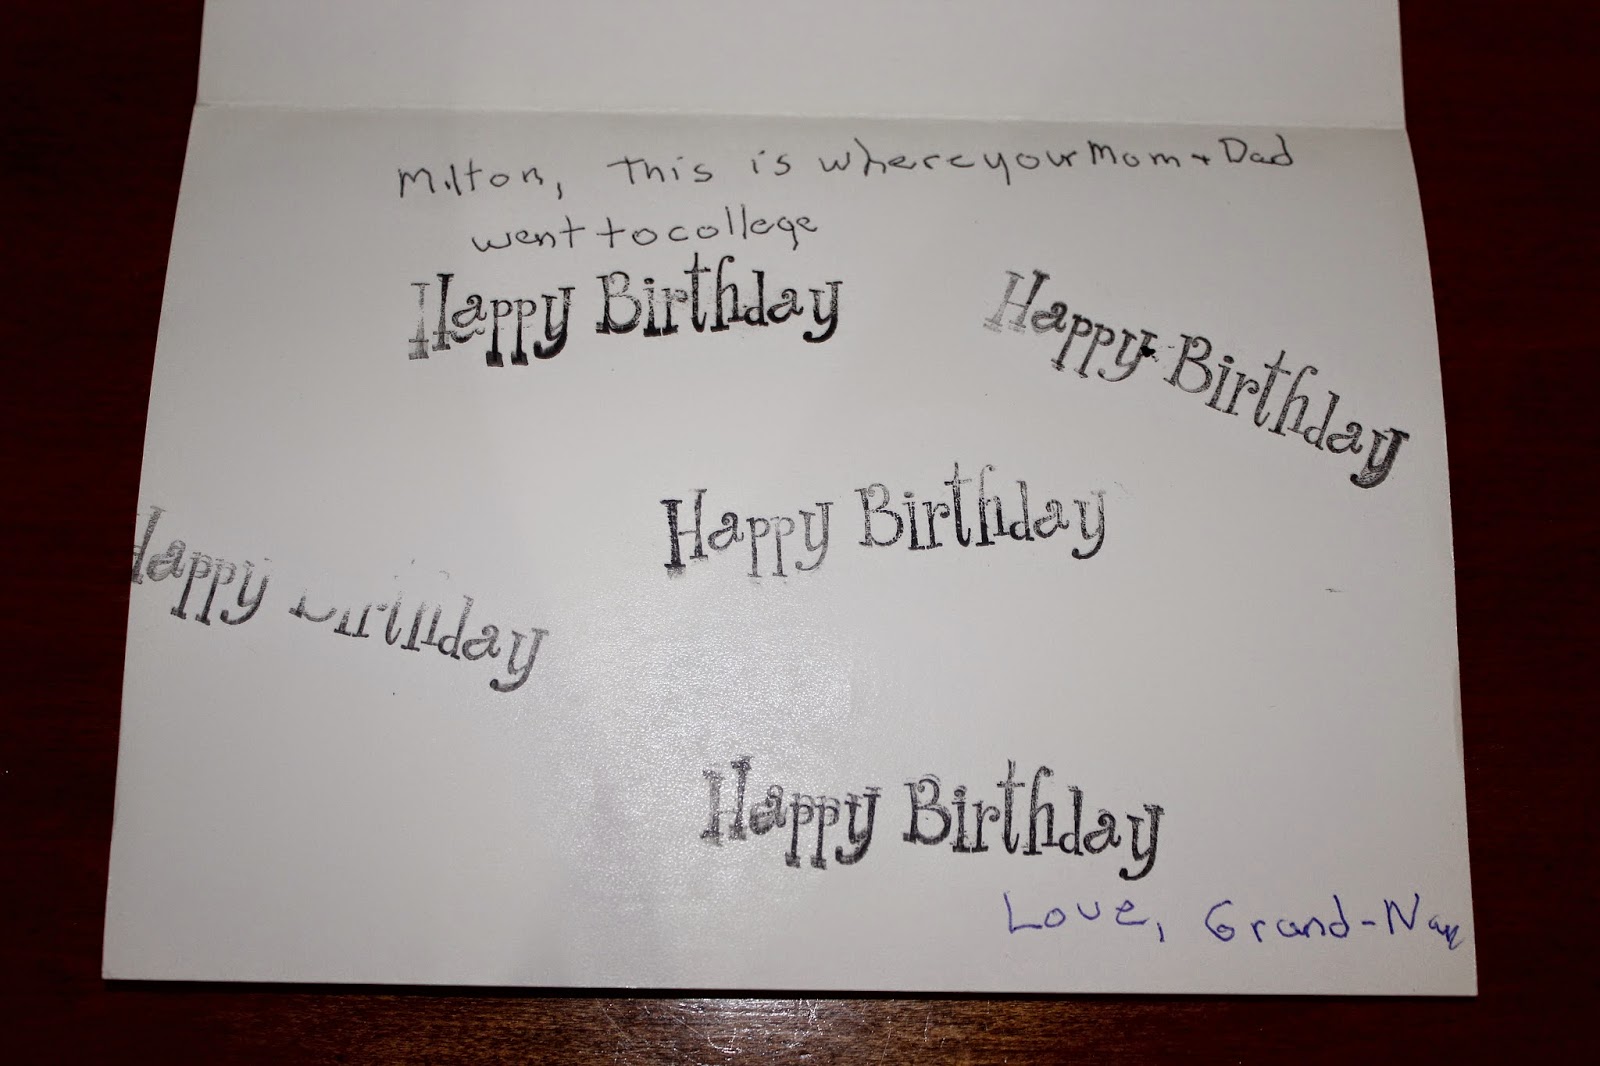 Milton, This is where your Mom + Dad
went to college
Happy Birthday
Happy Birthday
Happy Birthday
Happy Birthday
Happy Birthday
Love, Grand-Nan